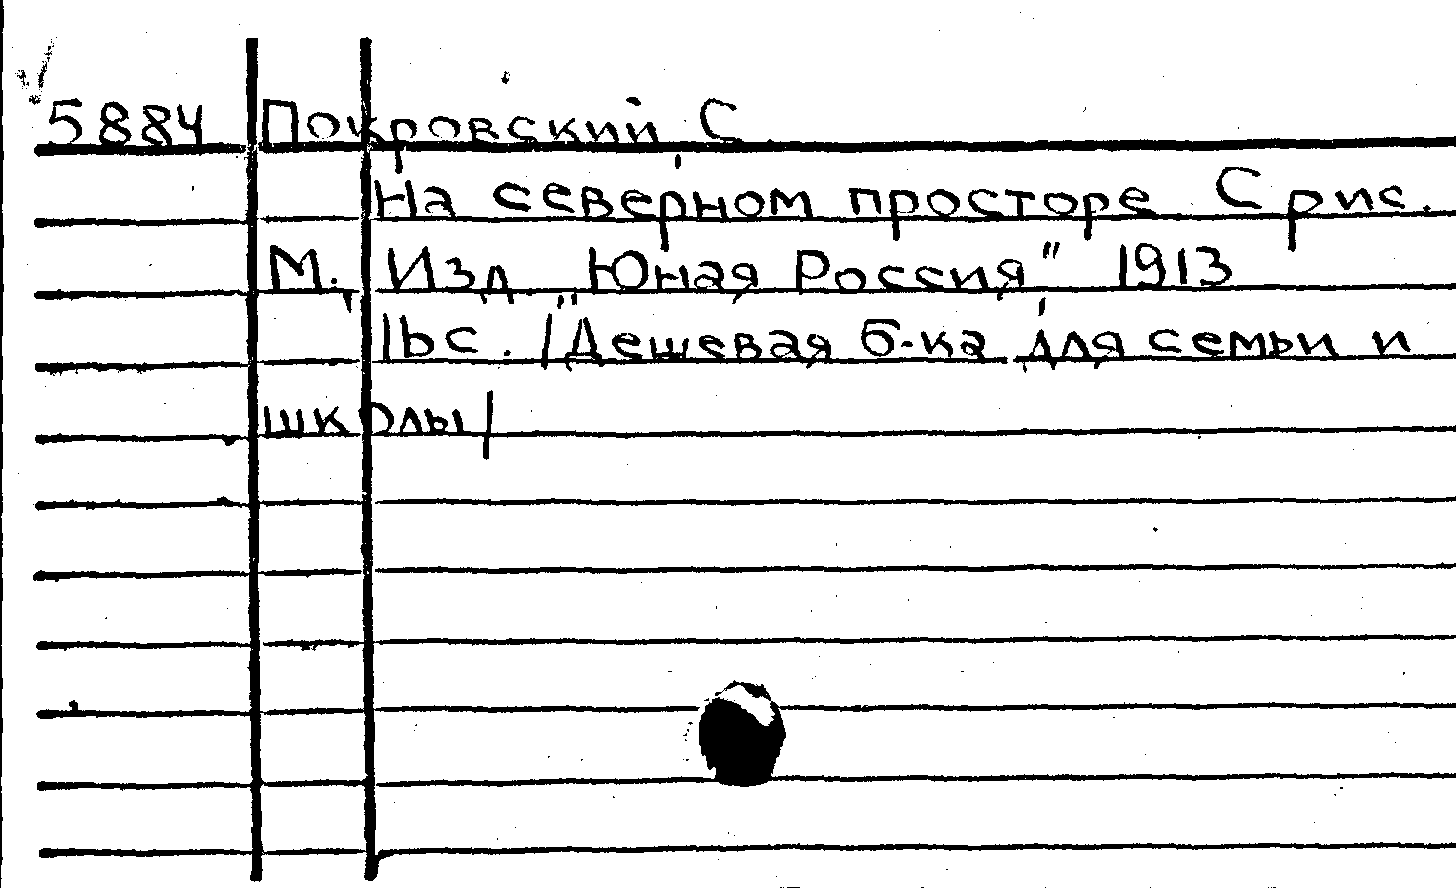 5884 Покровский С
На северном просторе С рис.
М., Изд „Юная Россия" 1913
16с. /Дешевая б-ка для семьи и
школы/